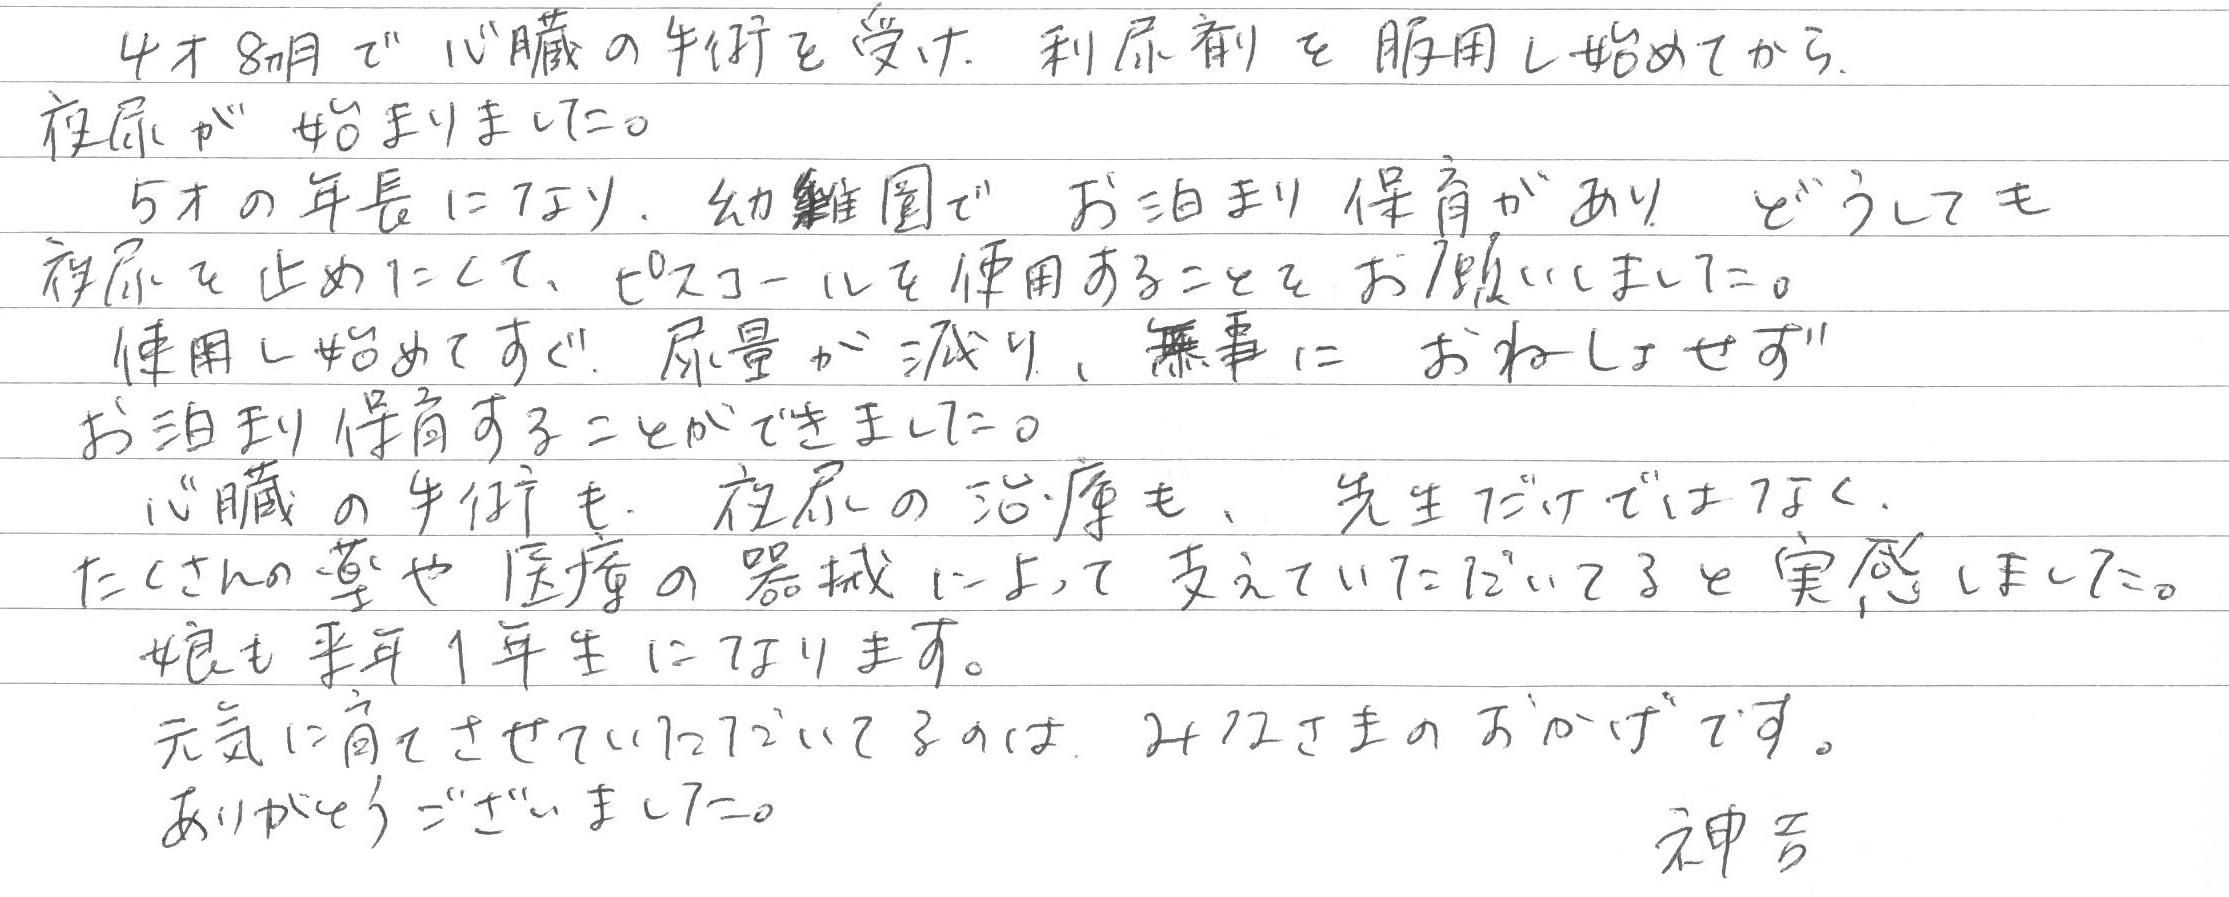 4才8ヵ月で心臓の手術を受け、利尿剤を服用し始めてから、
夜尿が始まりました。
5才の年長になり、幼稚園でお泊まり保育があり、どうしても
夜尿を止めたくて、ピスコールを使用することをお願いしました。
使用し始めてすぐ、尿量が減り、無事におねしょせず
お泊まり保育することができました。
心臓の手術も、夜尿の治療も、先生だけではなく、
たくさんの薬や医療の器械によって支えていただいてると実感しました。
娘も来年1年生になります。
元気に育てさせていただいてるのは、みなさまのおかげです。
ありがとうございました。
神吉